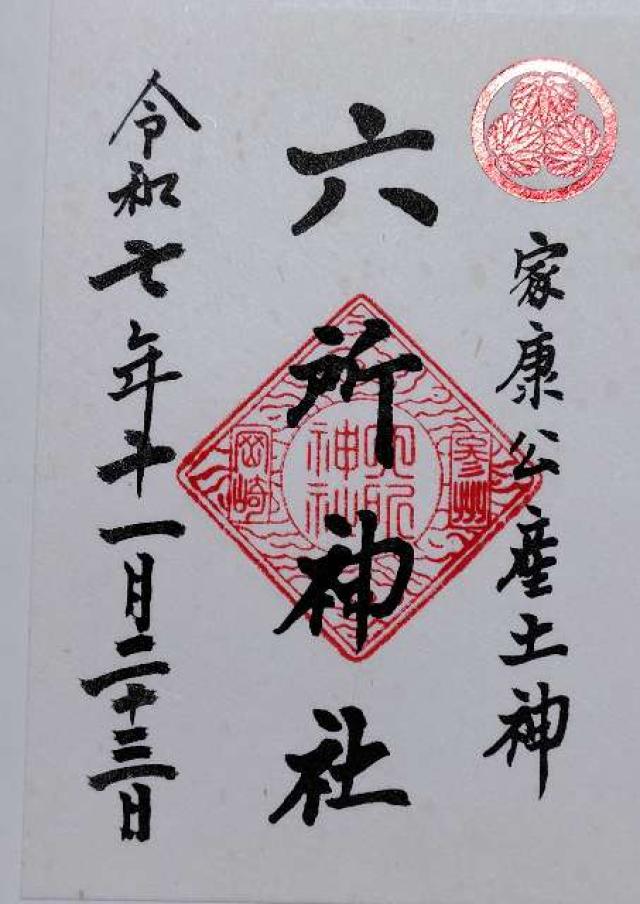 家康公産土神
六所神社
参州
六所
神社
岡崎
令和七年十一月二十三日